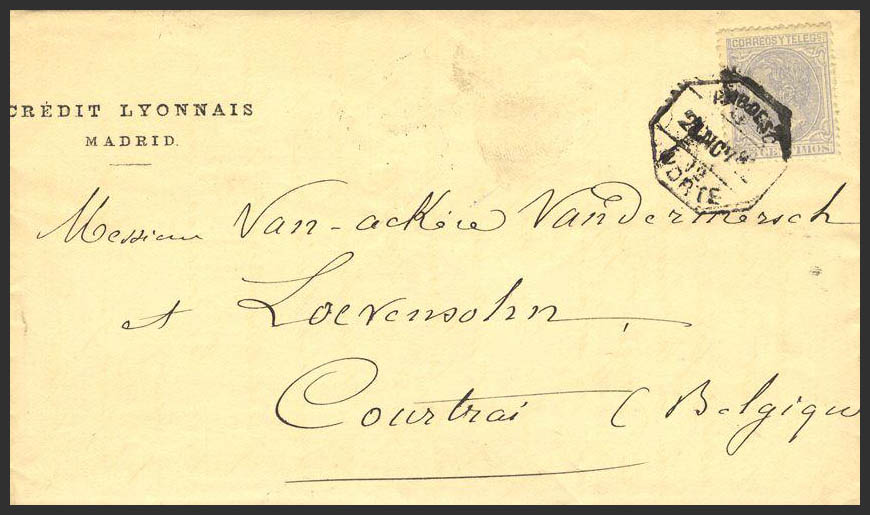 CRÉDIT LYONNAIS
MADRID.
CORREOS Y TELEGS
NORTE
Messieurs Van-ackère Vandermersch
et Loevensohn,
Courtrai (Belgique